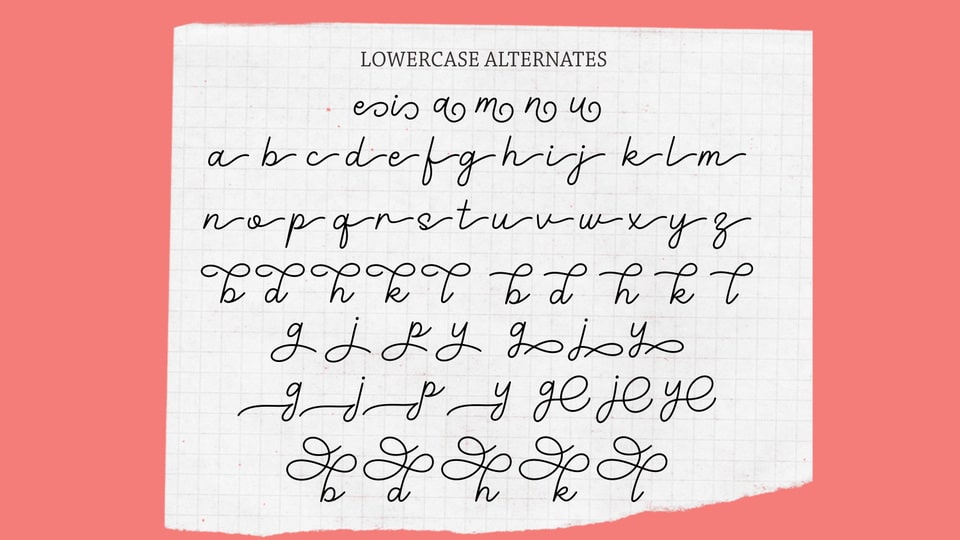 LOWERCASE ALTERNATES
e i s a m n u
a b c d e f g h i j k l m
n o p q r s t u v w x y z
b d h k l b d h k l
g j p y g j y
g j p y g j y
b d h k l